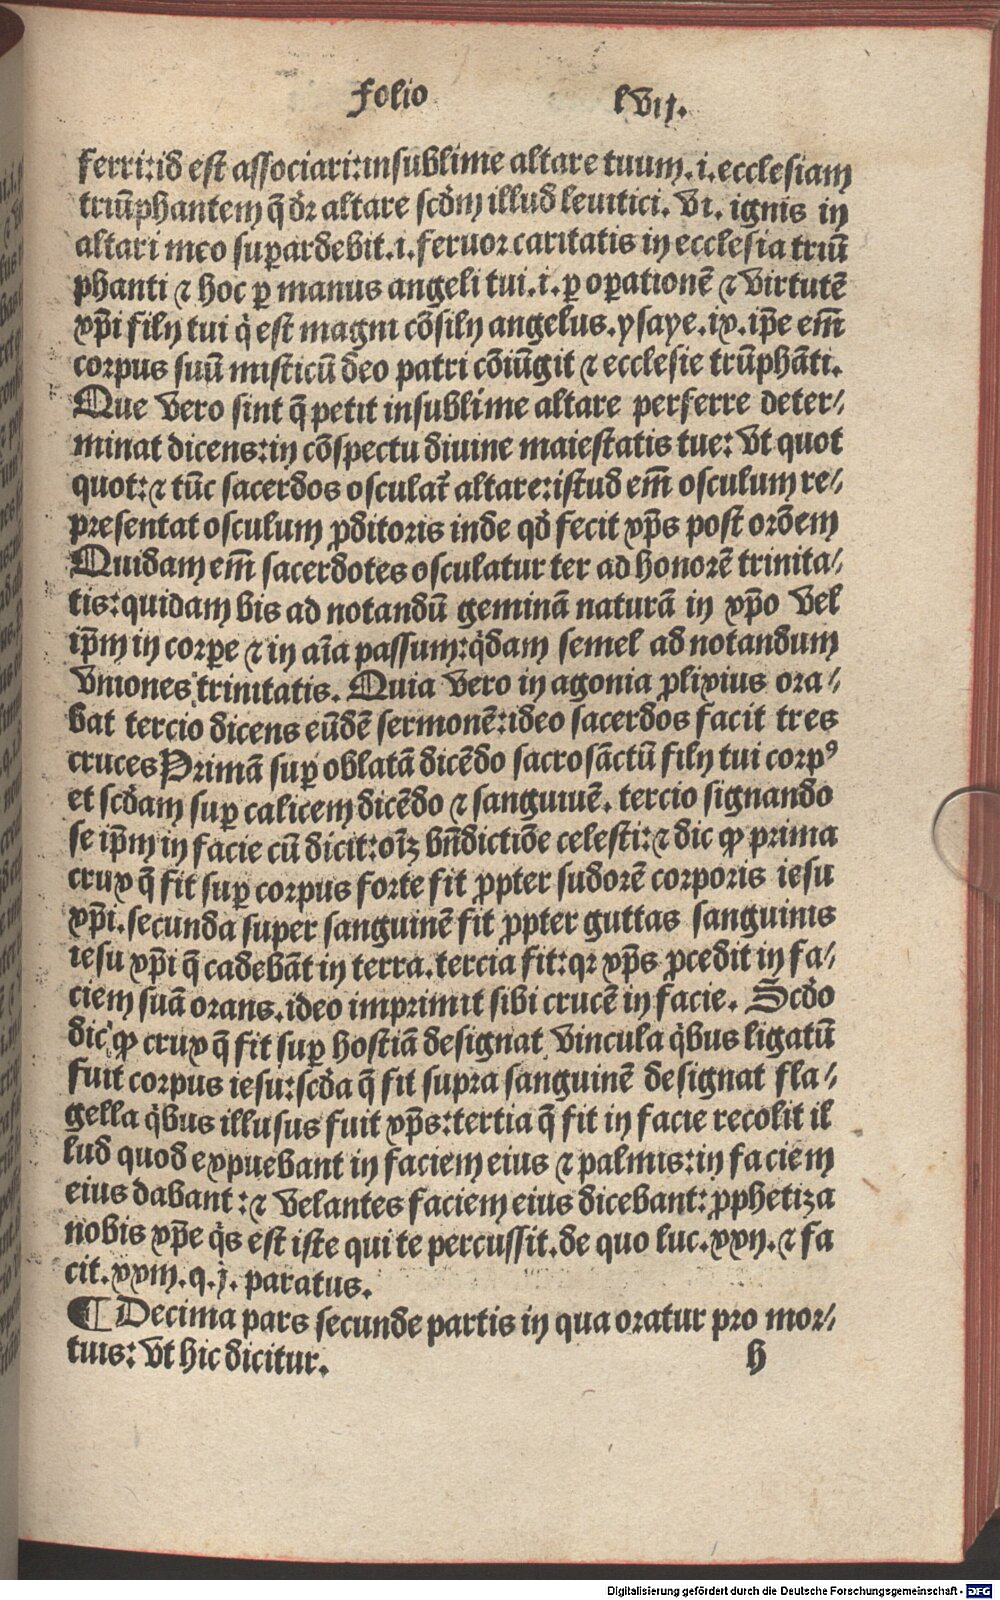 folio lvij.
ferri:id est associari:insublime altare tuum.i.ecclesiam
triūphantem q̄ dr̄ altare scd̄m illud leuitici. vi. ignis in
altari meo suꝑardebit.i.feruor caritatis in ecclesia triū
phanti ⁊ hoc ꝑ manus angeli tui.i.ꝑ oꝑationē ⁊ virtutē
xp̄i filij tui q̇ est magni cōsilij angelus.ysaye.ix.ip̄e em̄
corpus suū misticū deo patri cōiūgit ⁊ ecclesie triūphāti.
Que vero sint q̄ petit insublime altare perferre deter⸗
minat dicens:in cōspectu diuine maiestatis tue: vt quot
quot:⁊ tūc sacerdos osculat᷑ altare:istud em̄ osculum re⸗
presentat osculum ꝓditoris inde qd̄ fecit xp̄s post ordēm
Quidam em̄ sacerdotes osculatur ter ad honorē trinita⸗
tis:quidam bis ad notandū geminā naturā in xp̄o vel
ip̄m in corꝑe ⁊ in aīa passum:q̇dam semel ad notandum
vniones trinitatis. Quia vero in agonia ꝓlixius ora⸗
bat tercio dicens eūdē sermonē:ideo sacerdos facit tres
cruces Primā suꝑ oblatā dicēdo sacrosāctū filij tui corpꝰ
et scd̄am suꝑ calicem dicēdo ⁊ sanguiuē. tercio signando
se ip̄m in facie cū dicit:oīꝫ bn̄dictiōe celesti:⁊ dic ꝙ prima
crux q̄ fit suꝑ corpus forte fit ꝓpter sudorē corporis iesu
xp̄i.secunda super sanguinē fit ꝓpter guttas sanguinis
iesu xp̄i q̄ cadebāt in terra.tercia fit:qꝛ xp̄s ꝓcedit in fa⸗
ciem suā orans.ideo imprimit sibi crucē in facie. Scd̄o
dic̄ ꝙ crux q̄ fit suꝑ hostiā designat vincula q̇bus ligatū
fuit corpus iesu:scd̄a q̄ fit supra sanguinē designat fla⸗
gella q̇bus illusus fuit xp̄s:tertia q̄ fit in facie recolit il
lud quod expuebant in faciem eius ⁊ palmis:in faciem
eius dabant:⁊ velantes faciem eius dicebant:ꝓphetiza
nobis xp̄e q̇s est iste qui te percussit.de quo luc.xxij.⁊ fa
cit.xxiij.q.j. paratus.
¶ Decima pars secunde partis in qua oratur pro mor⸗
tuis: vt hic dicitur. h
Digitalisierung gefördert durch die Deutsche Forschungsgemeinschaft - DFG